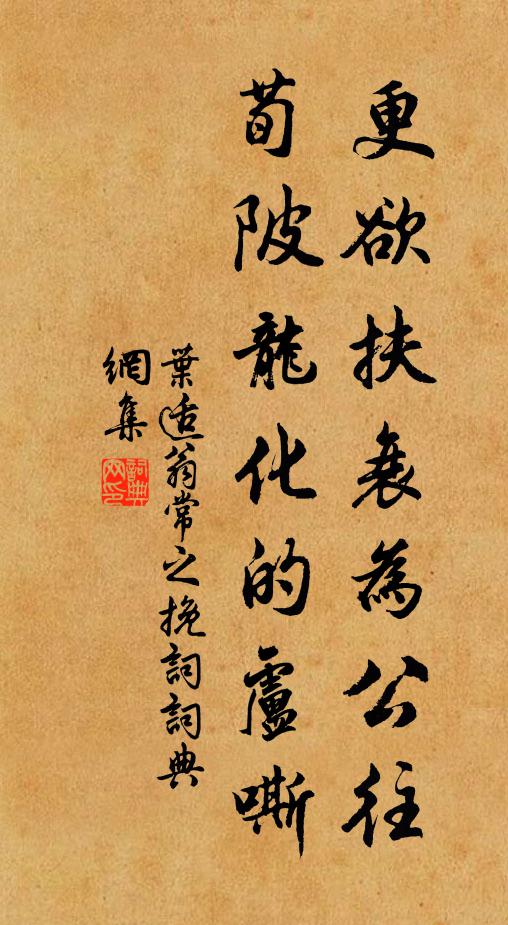 更欲扶衰為公往
荀陂龍化的盧嘶
葉適翁常之挽詞詞典
網集
詞典
网印